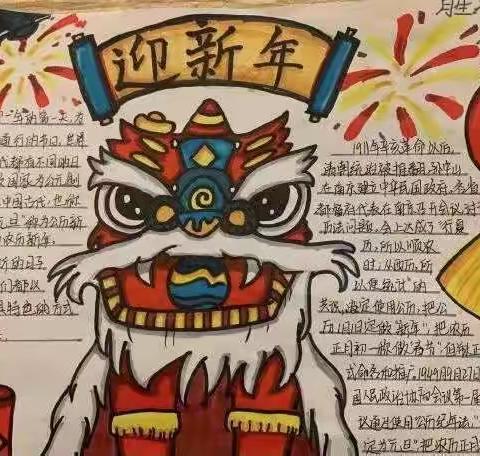 迎新年
的第一天,为
通行的节日,世界
代都有不同的日
国家为公元制
中国古代,也称
元旦"称为公历新
农历新年。
的日子
们都以
具特色的方式
1911年辛亥革命以后,
清朝统治被推翻,孙中山
在南京建立中华民国政府,各省
都督府代表在南京召开会议,讨
历法问题,会上达成了"行夏
历,所以顺农
时,从西历,所
以便统计"的
共识,决定使用公历,把公
历1月1日定做"新年",把农历
正月初一做"春节"但
式命名和推广,1949年9月27日
国人民政治协商会议第一届
议通过使用"公历纪年法。"
定为元旦"把农历正月